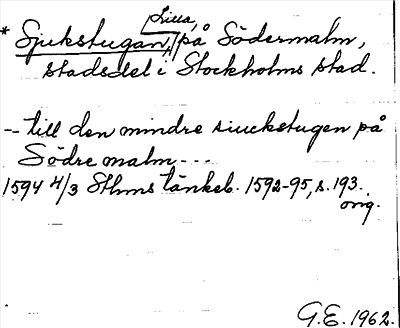 Lilla,
* Sjukstugan, på Södermalm,
stadsdel i Stockholms stad.
-- till den mindre siuckstugen på
Södre malm ---
1594 4/3 Sthms tänkeb. 1592-95, s. 193.
orig.
G.E. 1962.